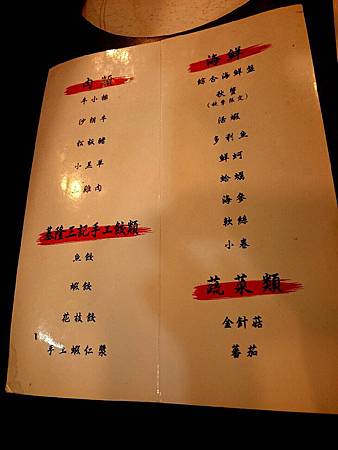 肉類
牛小排
沙朗牛
松板豬
小羔羊
土雞肉
基隆三記手工餃類
魚餃
蝦餃
花枝餃
手工蝦仁漿
海鮮
綜合海鮮盤
秋蟹
(秋季限定)
活蝦
多利魚
鮮蚵
蛤蠣
海參
軟絲
小卷
蔬菜類
金針菇
蕃茄